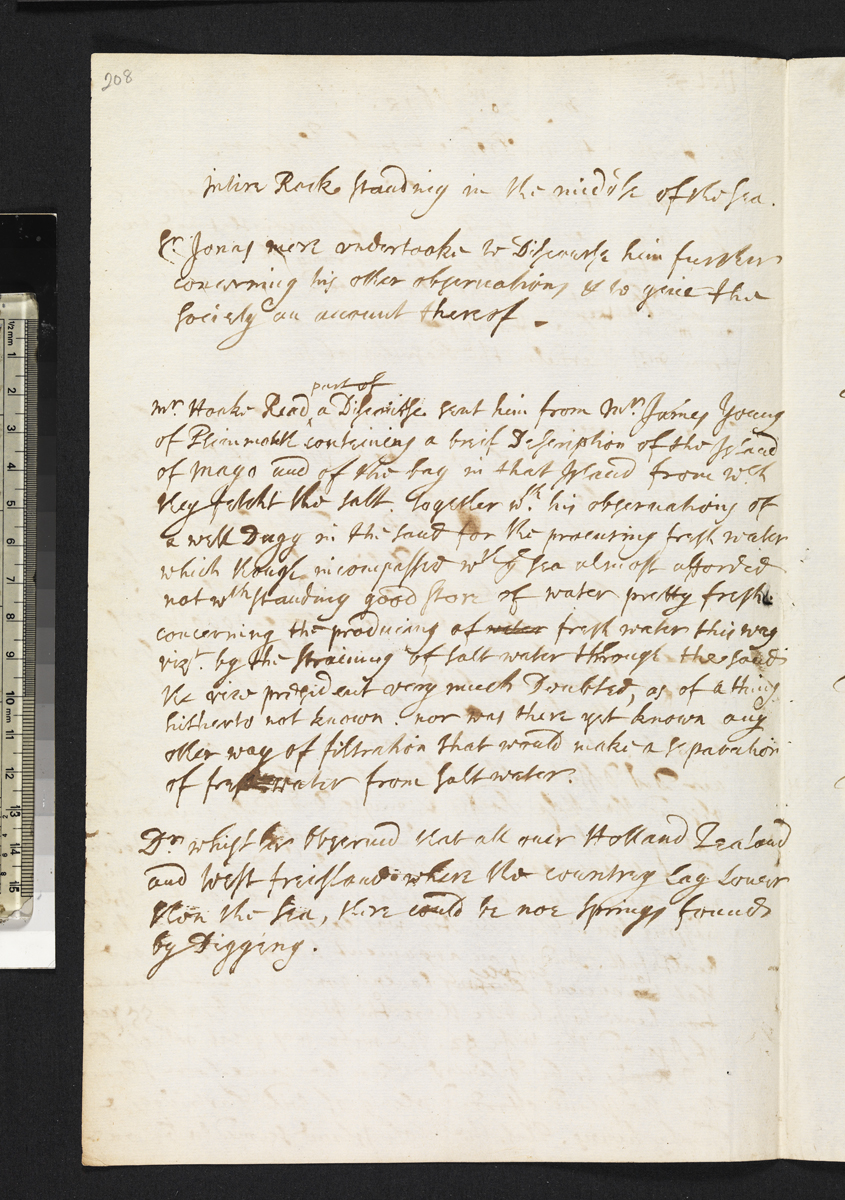 208
intire Rock standing in the middle of the sea.
Sr. Jonas more undertooke to Discourse him further
concerning his other observations & to give the
Society an account thereof -
part of
mr. Hooke Read a Discourse sent him from Mr. James Young
of Plimmouth containing a breif Description of the Island
of mayo and of the bay in that Island from wch
they fetcht the salt. together wth. his observations of
a well Dugg in the sand for the procuring fresh water
which though incompassed wth ye sea almost afforded
notwthstanding good store of water pretty fresh.
concerning the producing of water fresh water this way
vizt. by the straining of salt water through the sand
the vice president very much Doubted, as of a thing
hitherto not known. nor was there yet known any
other way of filtration that would make a separation
of fresh water from salt water.
Dr. whistler observed that all over Holland Zealand
and West freisland where the countrey Lay Lower
then the sea, there could be noe springs found
by Digging.
1/2 mm 1 2 3 4 5 6 7 8 9 10 mm 11 12 13 14 15